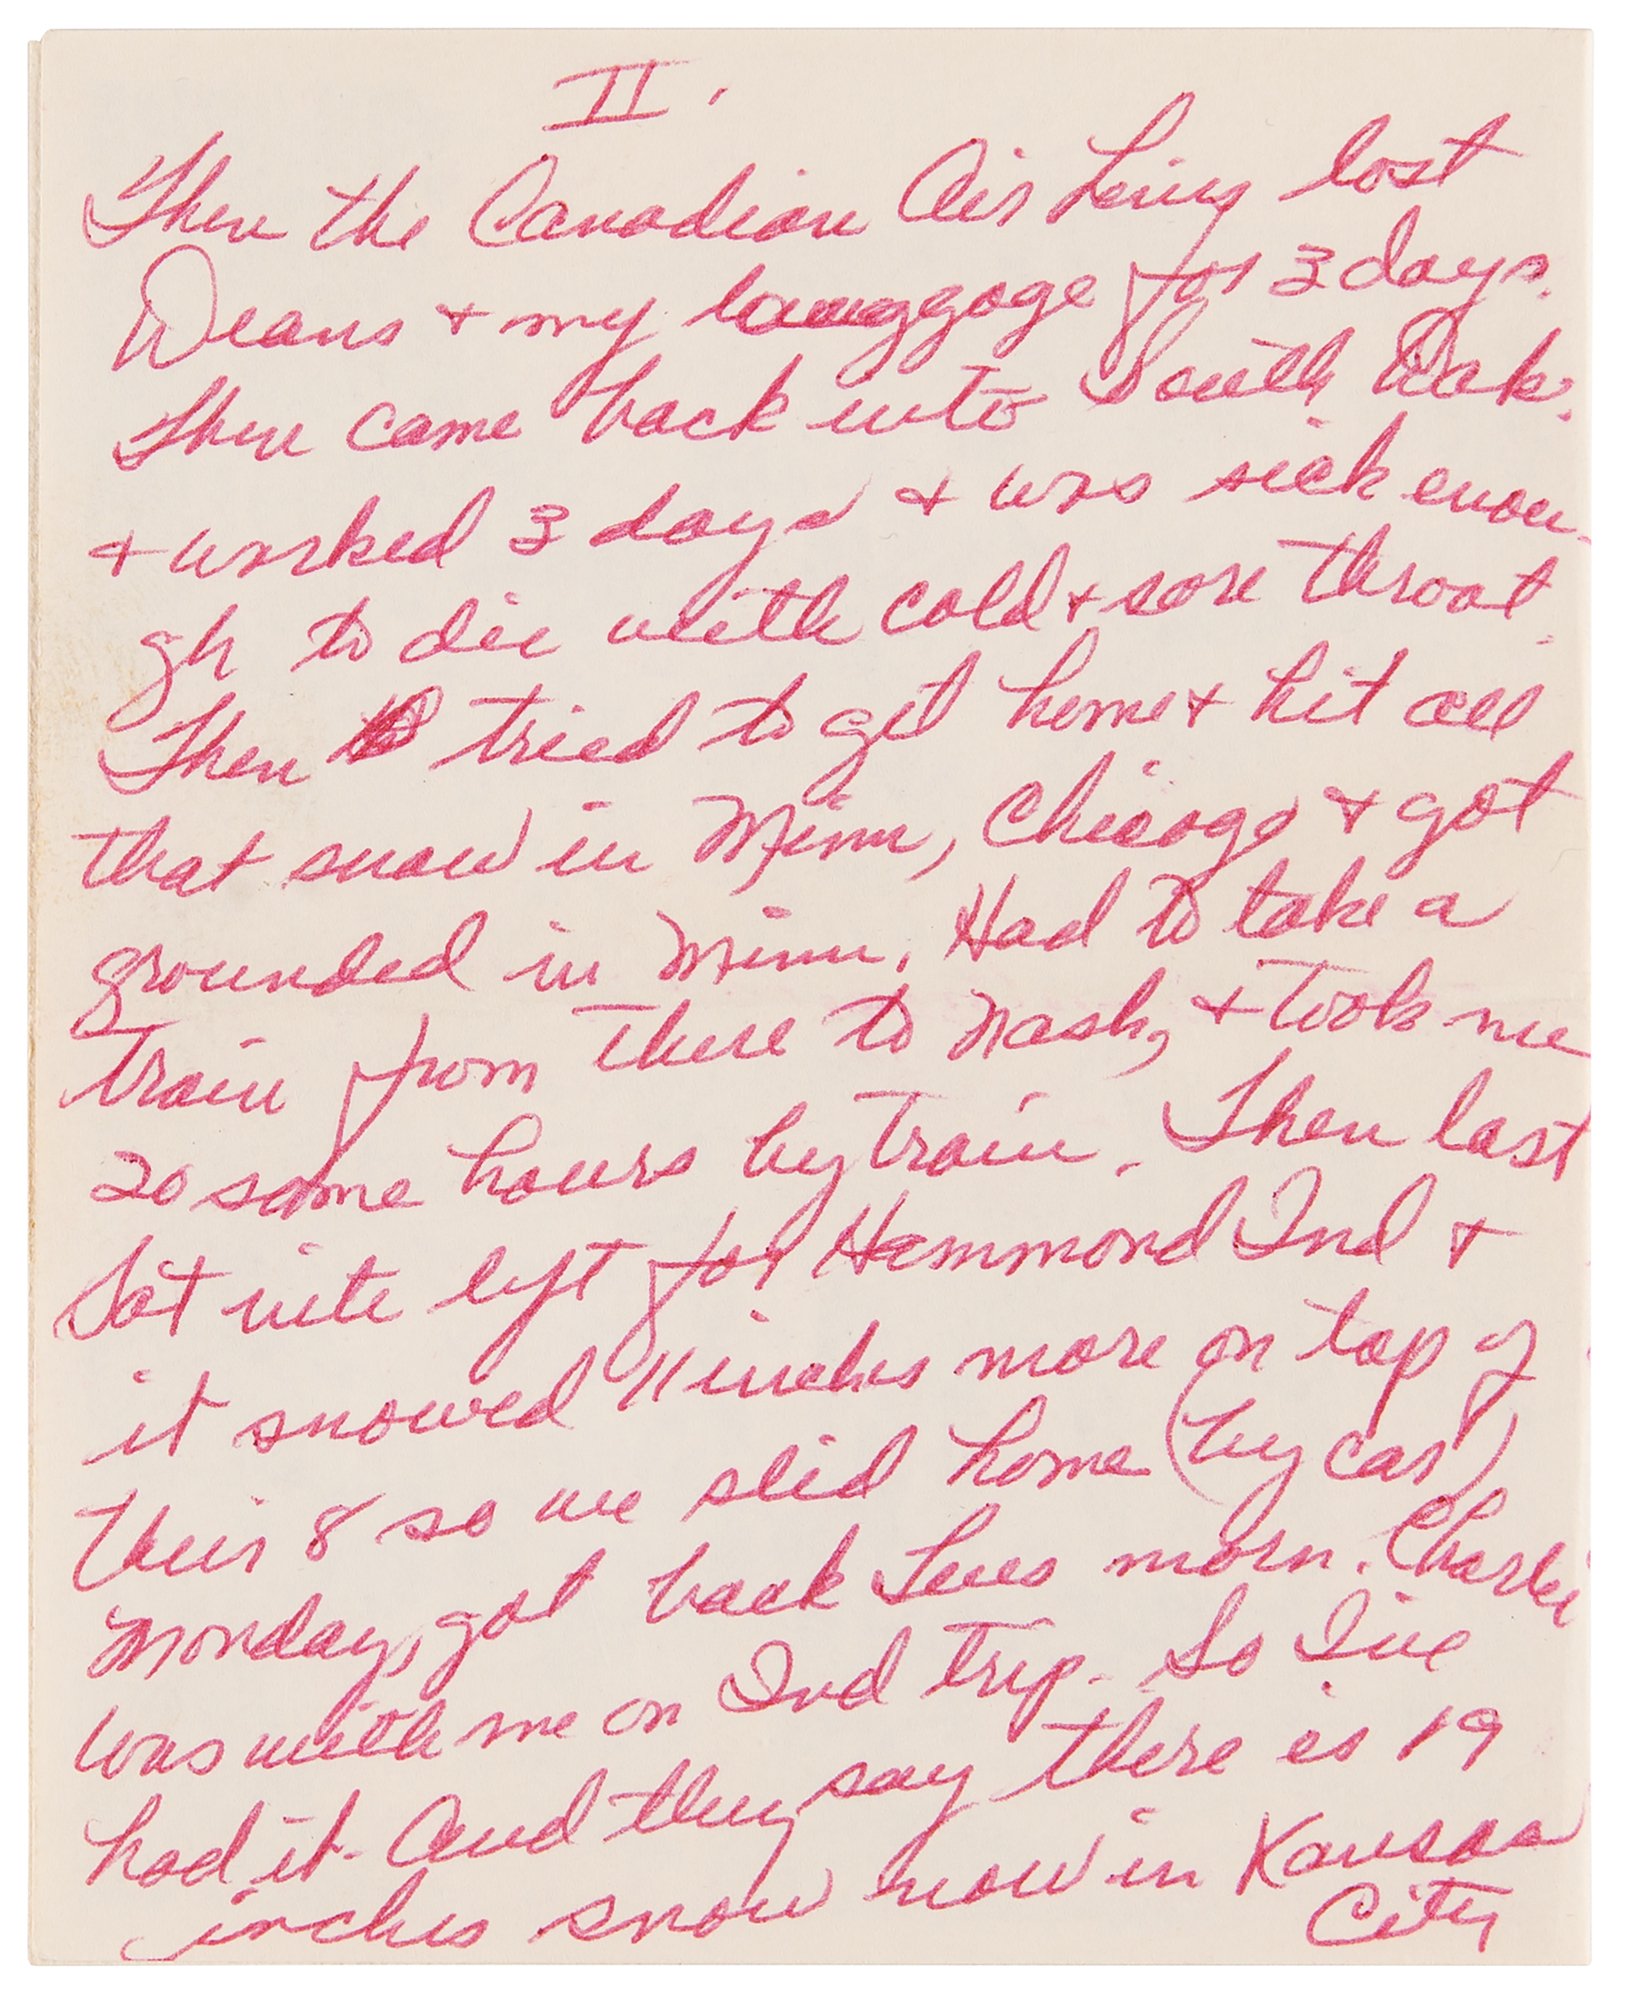 II.
Then the Canadian Air Lines lost
Deans + my lauggage for 3 days.
Then came back into South Dak.
+ worked 3 days + was sick enou-
gh to die with cold + sore throat.
Then tried to get home + hit all
that snow in Minn, Chicago + got
grounded in Minn. Had to take a
train from there to Nash, + took me
20 some hours by train. Then last
Sat nite left for Hammond Ind +
it snowed 11 inches more on top of
their 8 so we slid home (by car)
Monday, got back Tues morn. Charlie
was with me on Ind trip. So I've
had it. And they say there is 19
inches snow now in Kansas
City